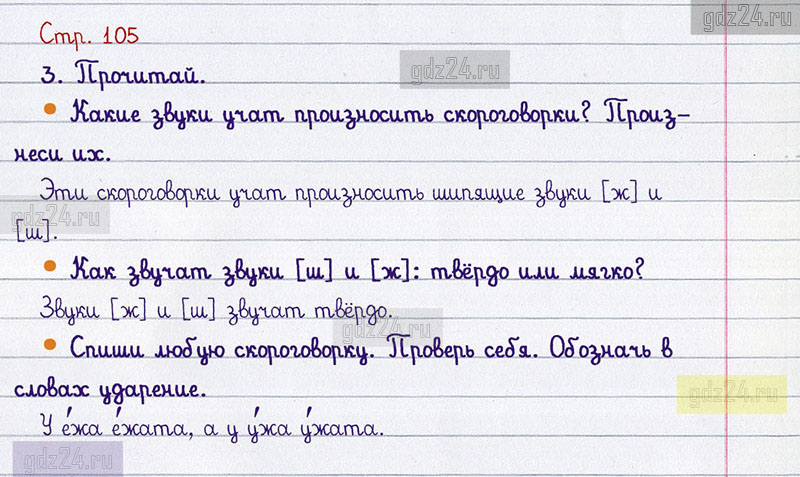 gdz24.ru
Стр. 105
3. Прочитай.
gdz24.ru
Какие звуки учат произносить скороговорки? Произ-
неси их.
Эти скороговорки учат произносить шипящие звуки [ж] и
gdz24.ru
[ш].
Как звучат звуки [ш] и [ж]: твёрдо или мягко?
Звуки [ж] и [ш] звучат твёрдо.
gdz24.ru
Спиши любую скороговорку. Проверь себя. Обозначь в
словах ударение.
gdz24.ru
У е́жа е́жата, а у у́жа у́жата.
gdz24.ru